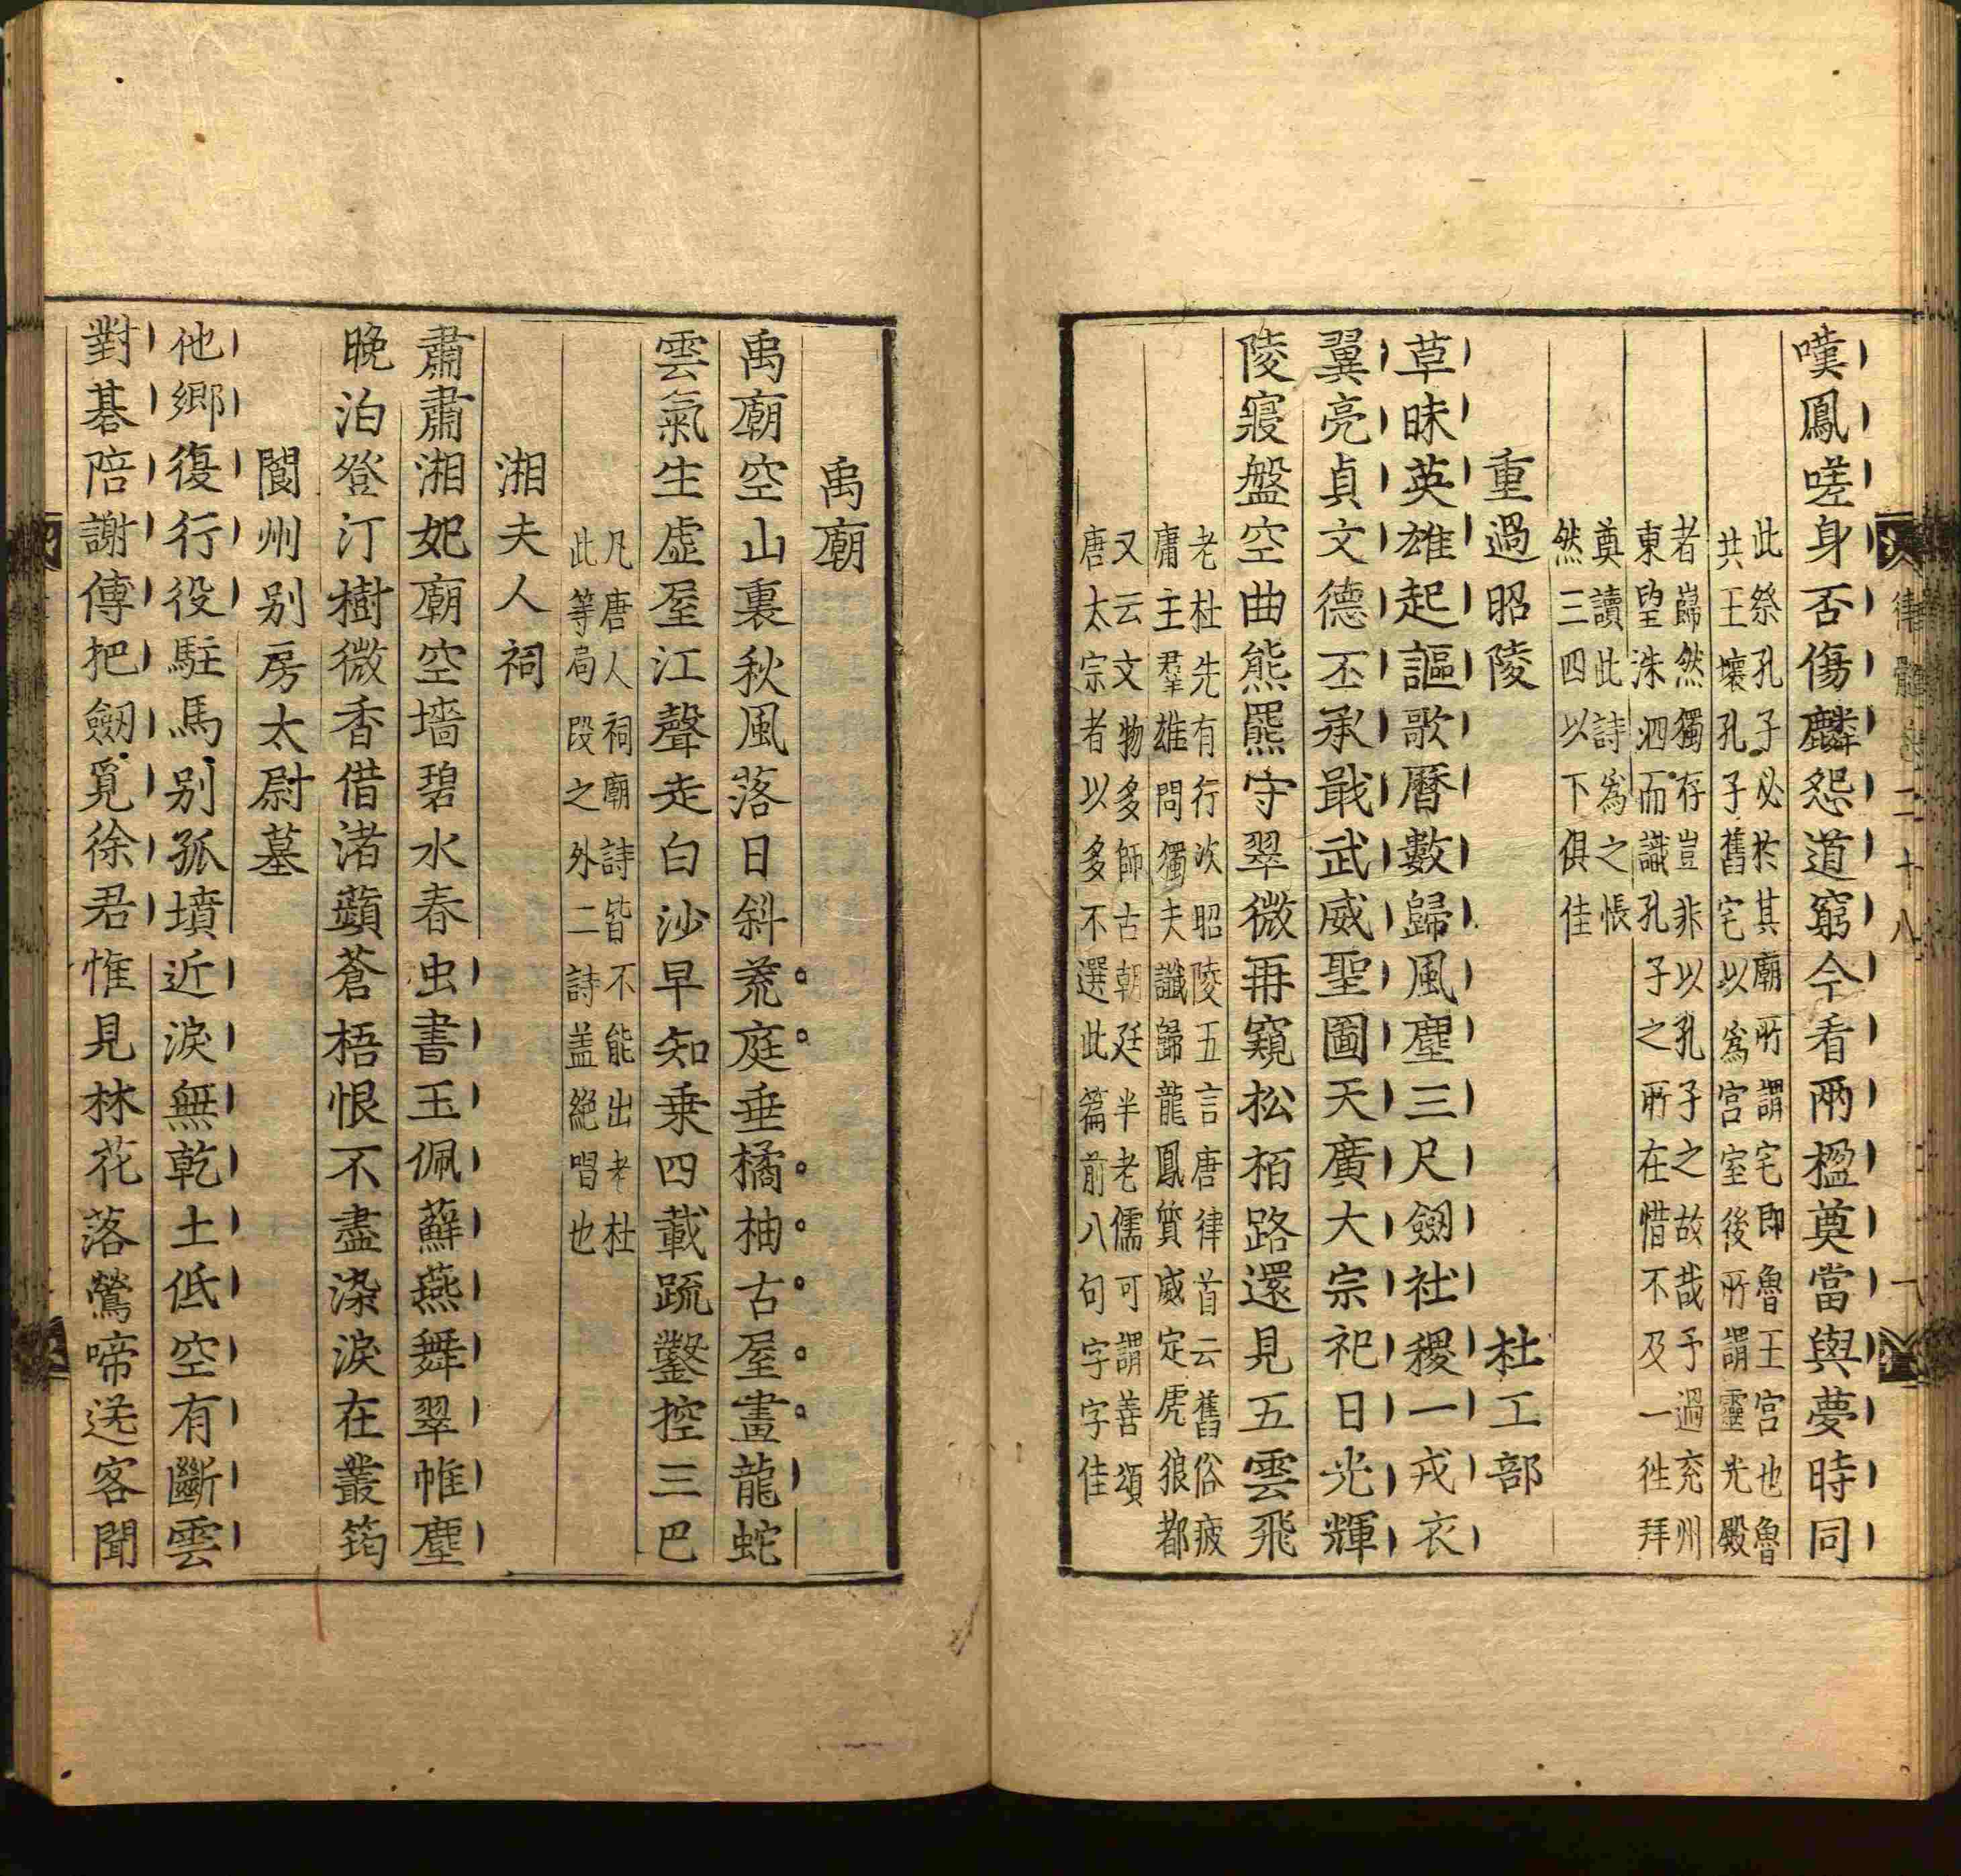 律髓卷二十八
嘆鳳嗟身否傷麟怨道窮今看兩楹奠當與夢時同
此祭孔子必於其廟所謂宅即魯王宮也魯
共王壞孔子舊宅以爲宮室後所謂靈光殿
者巋然獨存豈非以孔子之故哉予過兖州
東望洙泗而識孔子之所在惜不及一徃拜
奠讀此詩爲之悵
然三四以下俱佳
重過昭陵 杜工部
草昧英雄起謳歌曆數歸風塵三尺劒社稷一戎衣
翼亮貞文德丕承戢武威聖圖天廣大宗祀日光輝
陵寢盤空曲熊羆守翠微再窺松栢路還見五雲飛
老杜先有行次昭陵五言唐律首云舊俗疲
庸主羣雄問獨夫讖歸龍鳳質威定虎狼都
又云文物多師古朝廷半老儒可謂善頌
唐太宗者以多不選此篇前八句字字佳
禹廟
禹廟空山裏秋風落日斜荒庭垂橘柚古屋畫龍蛇
雲氣生虛屋江聲走白沙早知乗四載䟽鑿控三巴
凡唐人祠廟詩皆不能出老杜
此等局段之外二詩盖絕唱也
湘夫人祠
肅肅湘妃廟空墻碧水春虫書玉佩蘚燕舞翠帷塵
晚泊登汀樹微香借渚蘋蒼梧恨不盡染淚在叢筠
閬州别房太尉墓
他鄉復行役駐馬别孤墳近淚無乾土低空有斷雲
對碁陪謝傅把劒覓徐君惟見林花落鶯啼送客聞